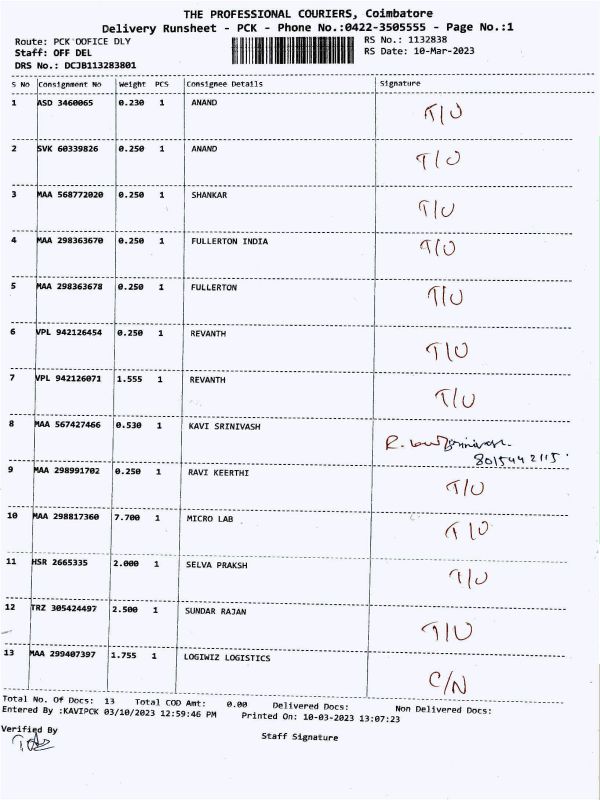 THE PROFESSIONAL COURIERS, Coimbatore
Delivery Runsheet - PCK - Phone No.:0422-3505555 - Page No.:1
Route: PCK OOFICE DLY RS No.: 1132838
Staff: OFF DEL RS Date: 10-Mar-2023
DRS No.: DCJB113283801
S No Consignment No Weight PCS Consignee Details Signature
1 ASD 3460065 0.230 1 ANAND T/U
2 SVK 60339826 0.250 1 ANAND T/U
3 MAA 568772020 0.250 1 SHANKAR T/U
4 MAA 298363670 0.250 1 FULLERTON INDIA T/U
5 MAA 298363678 0.250 1 FULLERTON T/U
6 VPL 942126454 0.250 1 REVANTH T/U
7 VPL 942126071 1.555 1 REVANTH T/U
8 MAA 567427466 0.530 1 KAVI SRINIVASH R.
8015442115
9 MAA 298991702 0.250 1 RAVI KEERTHI T/U
10 MAA 298817360 7.700 1 MICRO LAB T/U
11 HSR 2665335 2.000 1 SELVA PRAKSH T/U
12 TRZ 305424497 2.500 1 SUNDAR RAJAN T/U
13 MAA 299407397 1.755 1 LOGIWIZ LOGISTICS C/N
Total No. Of Docs: 13 Total COD Amt: 0.00 Delivered Docs: Non Delivered Docs:
Entered By :KAVIPCK 03/10/2023 12:59:46 PM Printed On: 10-03-2023 13:07:23
Verified By
Staff Signature